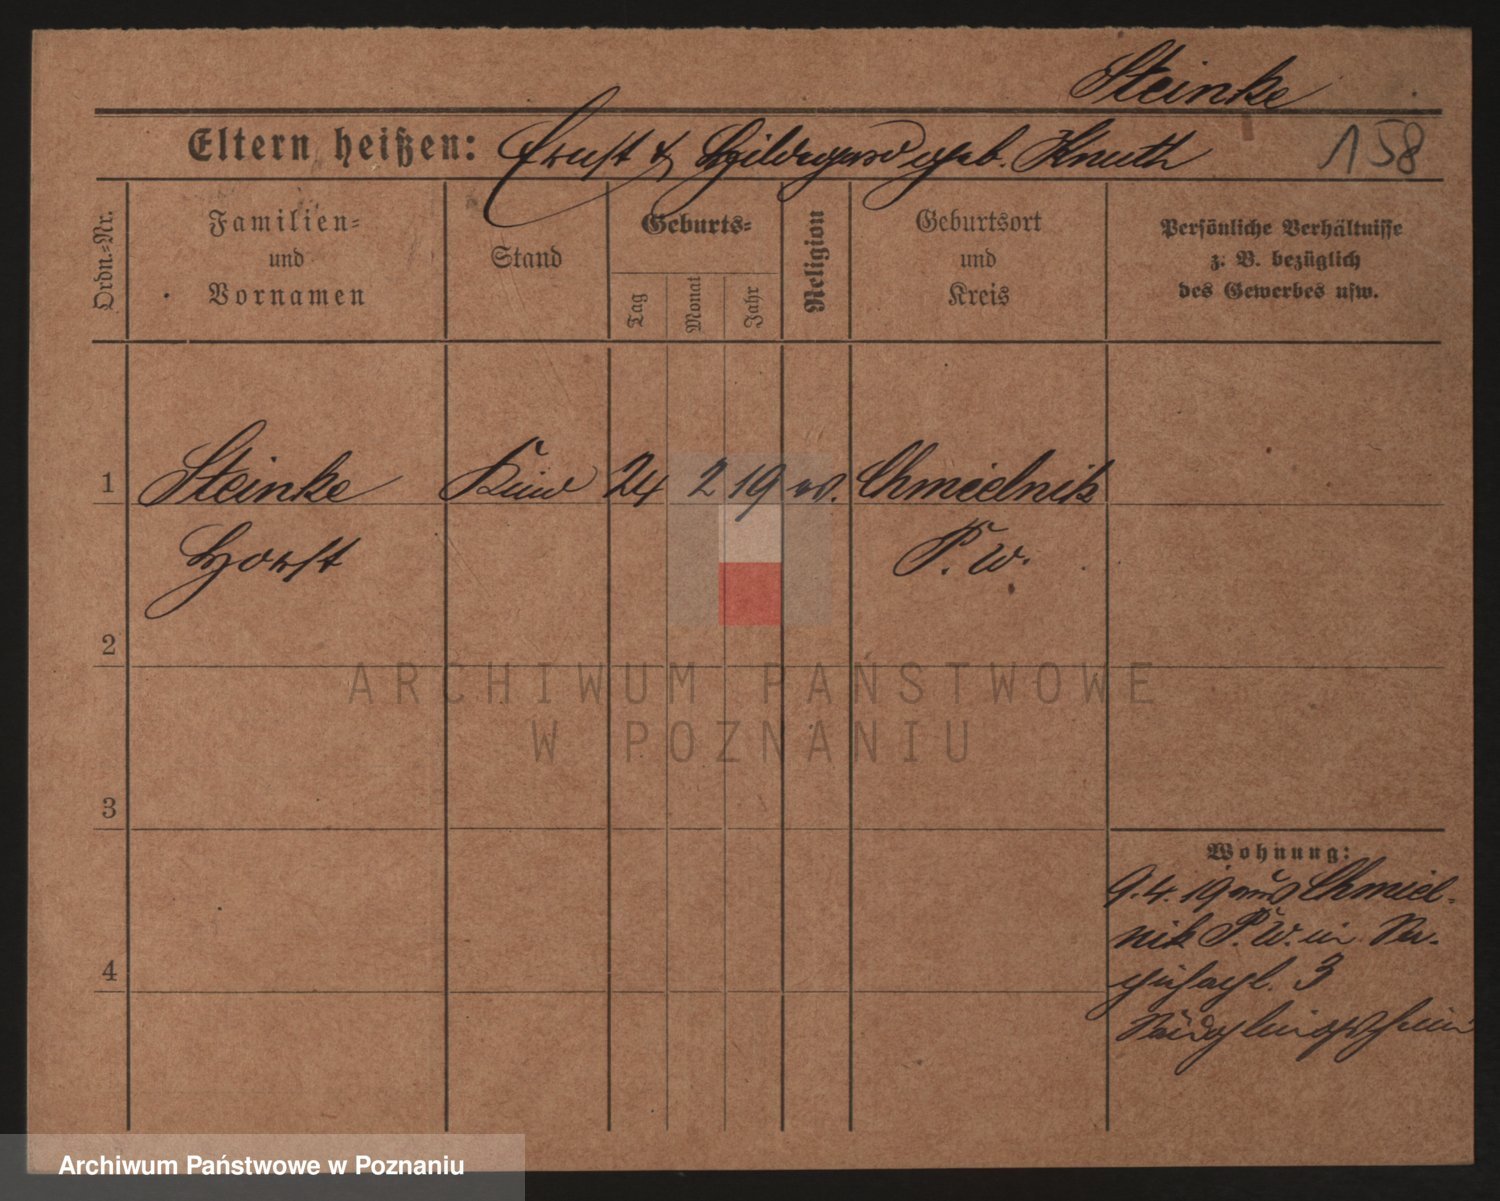 Steinke
Eltern heißen: Ernst & Hildegard geb. Knuth 158
Ordn.-Nr.
Familien-
und
Vornamen
Stand
Geburts-
Tag
Monat
Jahr
Religion
Geburtsort
und
Kreis
Persönliche Verhältnisse
z. B. bezüglich
des Gewerbes usw.
1 Steinke Kind 24 2 19 ev. Chmielnik
Horst P. W.
2
3
4
Wohnung:
9.4.19 aus Chmiel-
nik P. W. in
3
Säuglingsheim
ARCHIWUM PAŃSTWOWE
W POZNANIU
Archiwum Państwowe w Poznaniu